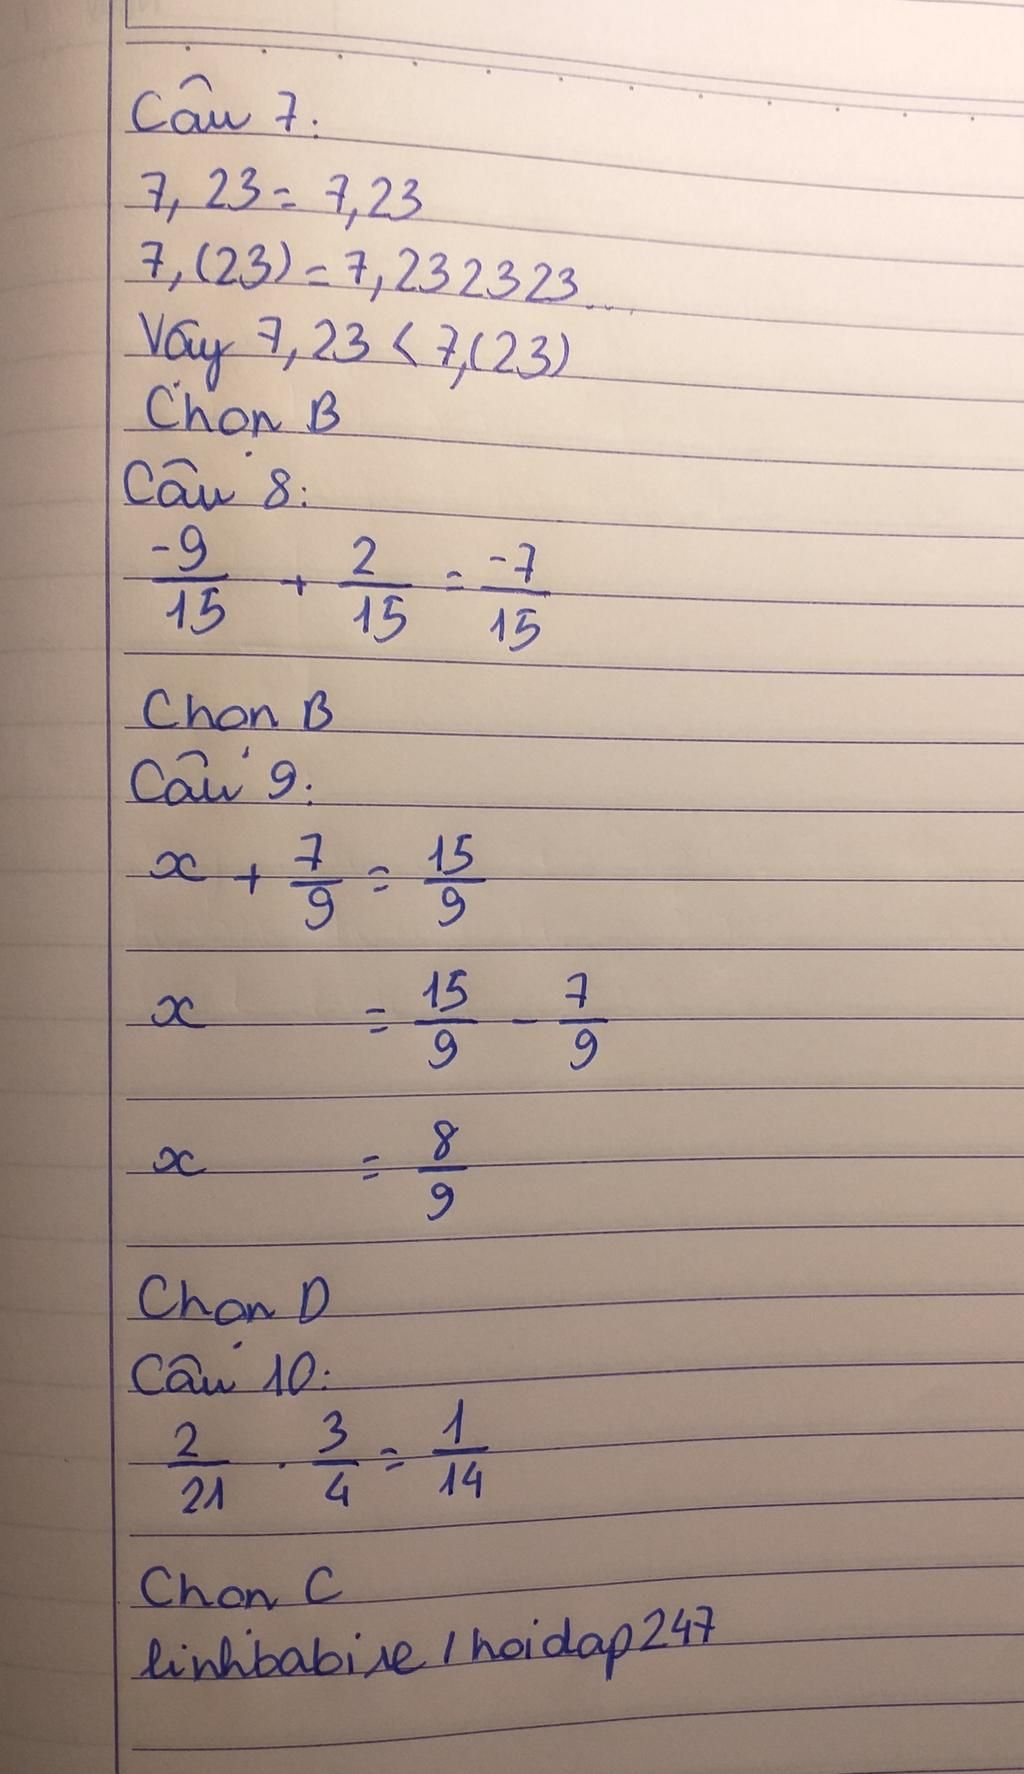 Câu 7:
7,23 = 7,23
7,(23) = 7,232323...
Vậy 7,23 < 7,(23)
Chọn B
Câu 8:
-9/15 + 2/15 = -7/15
Chọn B
Câu 9:
x + 7/9 = 15/9
x = 15/9 - 7/9
x = 8/9
Chọn D
Câu 10:
2/21 . 3/4 = 1/14
Chọn C
linhbabise / hoidap247